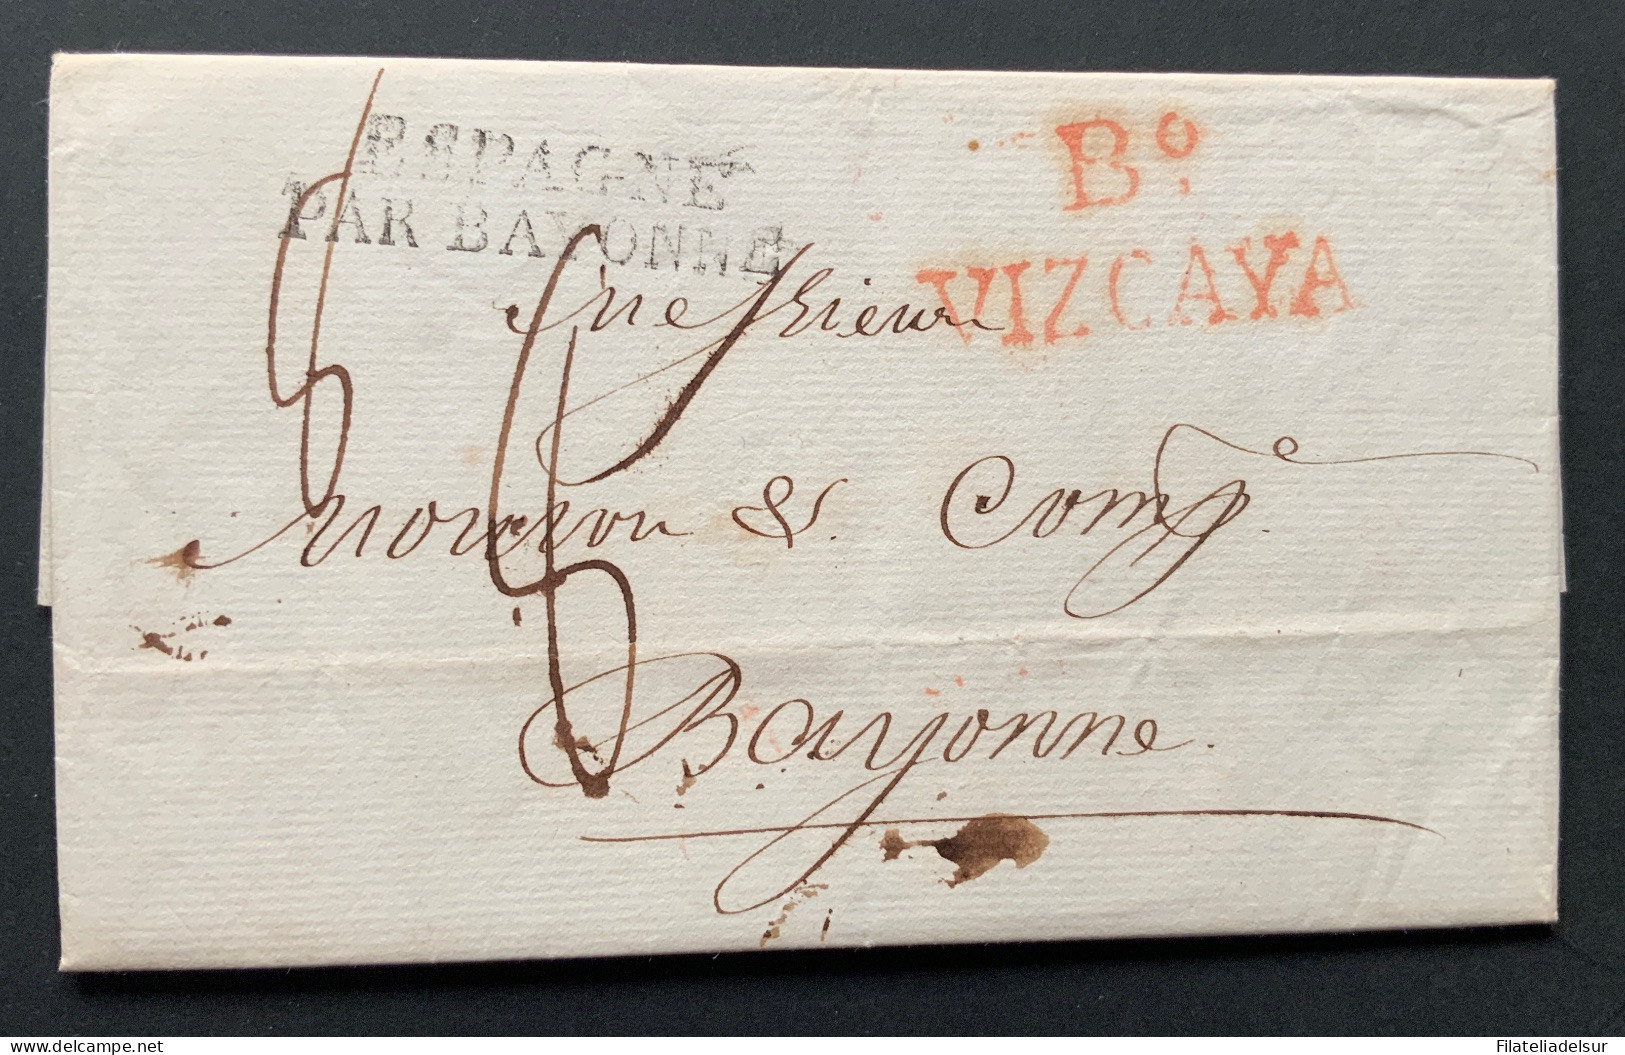 ESPAGNE
PAR BAYONNE
Bº
VIZCAYA
Messieurs
& Compe
Bayonne.
www.delcampe.net
Filateliadelsur